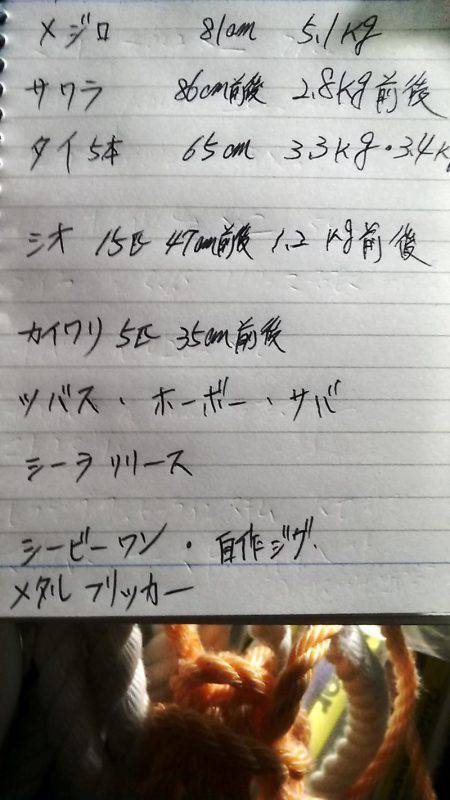 メジロ 81cm 5.1kg
サワラ 86cm前後 2.8kg前後
タイ5本 65cm 3.3kg・3.4k
シオ 15匹 47cm前後 1.2kg前後
カイワリ 5匹 35cm前後
ツバス、ホーボー、サバ
シーラリリース
シービーワン・自作ジグ.
メタルフリッカー